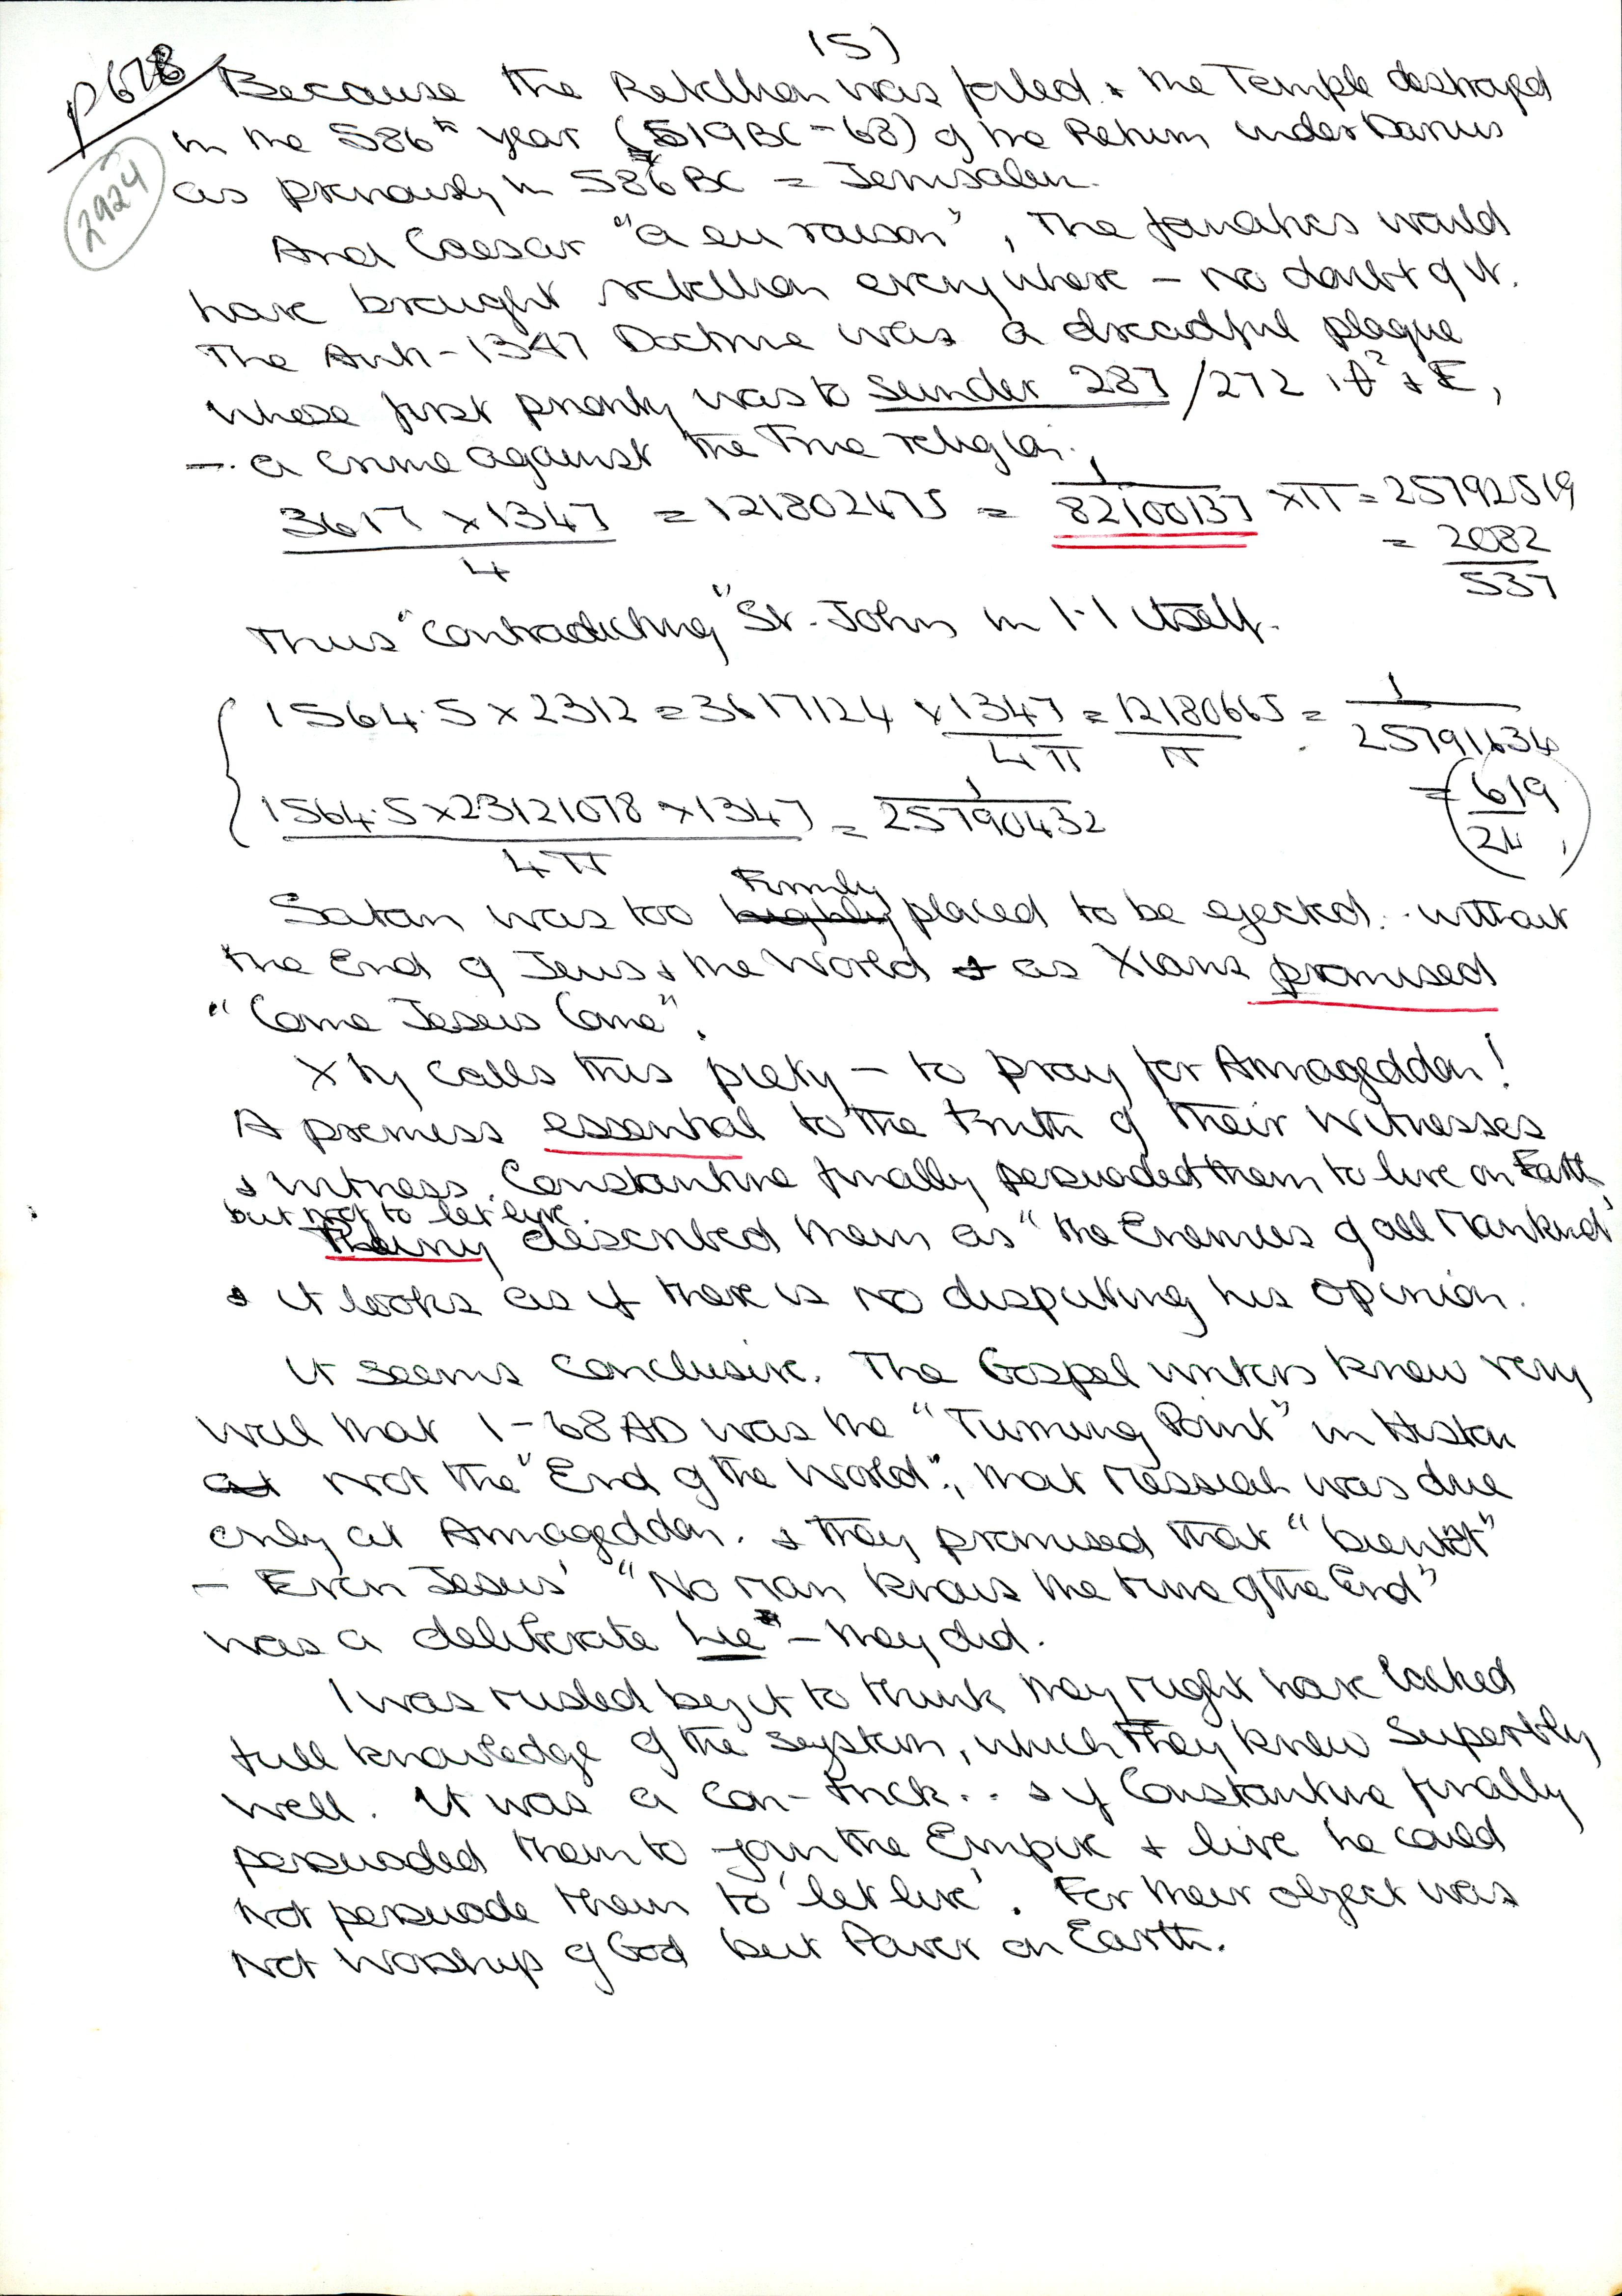 15)
p678
2924
Because the Rebellion was foiled & the Temple destroyed
in the 586th year (519BC - 68) of the Return under Darius
as previously in 586 BC = Jerusalem.
And Caesar "a eu raison", The fanatics would
have brought rebellion everywhere - no doubt of it.
The Anti-1347 Doctrine was a dreadful plague
whose first priority was to sunder 287/272
- a crime against the True religion.
3617 x 1347 / 4 = 121802475 = 1 / 82100137 x π = 25792519
= 2082 / 537
Thus "contradicting" St. John in 1.1 itself.
1564.5 x 2312 = 3617124 x 1347 / 4π = 12180665 / π = 1 / 25791634
= (619 / 24)
1564.5 x 23121078 x 1347 / 4π = 1 / 25790432
Satan was too highly Firmly placed to be ejected.. without
the End of Jews & the World & as Xians promised
"Come Jesus Come".
Xty calls this piety - to pray for Armageddon!
A premiss essential to the truth of their Witnesses
& witness. Constantine finally persuaded them to live on Earth
but not to let live.
described them as "the Enemies of all Mankind"
& it looks as if there is no disputing his opinion.
It seems conclusive. The Gospel writers knew very
well that 1-68 AD was the "Turning Point" in
not the "End of the World", that Messiah was due
only at Armageddon. & they promised that "bientôt"
- Even Jesus' "No Man knows the time of the End"
was a deliberate Lie - they did.
I was misled by it to think they might have lacked
full knowledge of the system, which they knew superbly
well. It was a con-trick.. & if Constantine finally
persuaded them to join the Empire & live he could
not persuade them to 'let live'. For their object was
not worship of God but Power on Earth.